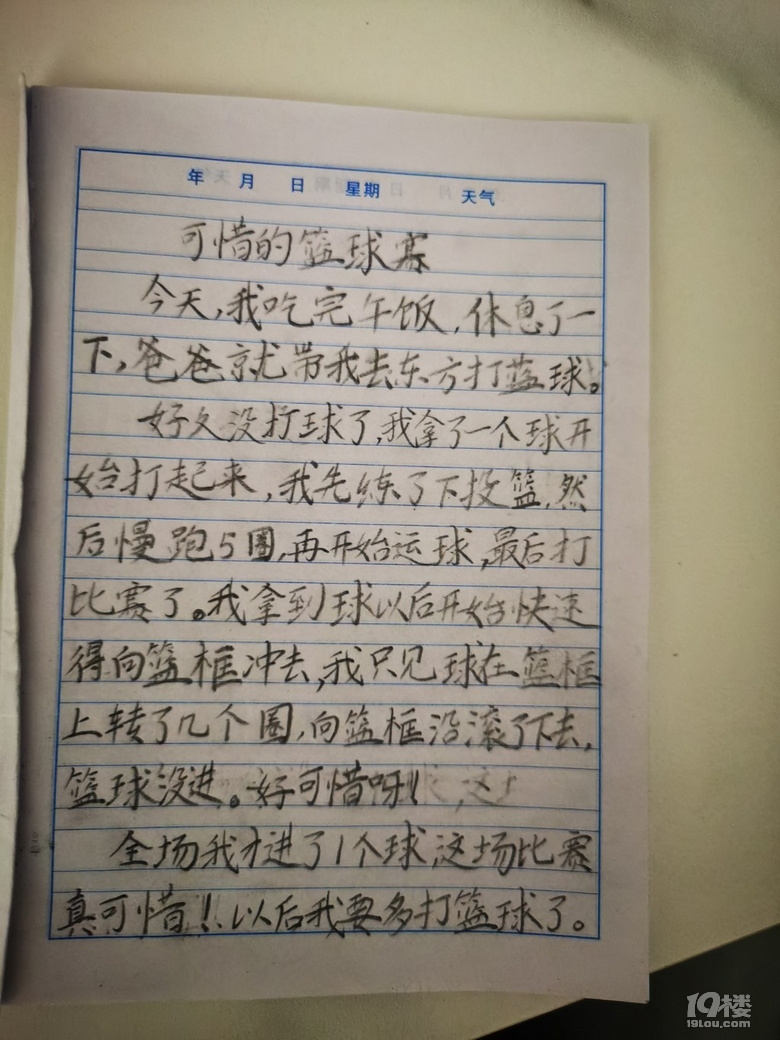 年 月 日 星期 天气
可惜的篮球赛
今天,我吃完午饭,休息了一
下,爸爸就带我去东方打篮球。
好久没打球了,我拿了一个球开
始打起来,我先练了下投篮,然
后慢跑5圈,再开始运球,最后打
比赛了。我拿到球以后开始快速
得向篮框冲去,我只见球在篮框
上转了几个圈,向篮框沿滚了下去,
篮球没进。好可惜呀!
全场我才进了1个球,这场比赛
真可惜!以后我要多打篮球了。
19楼
19lou.com